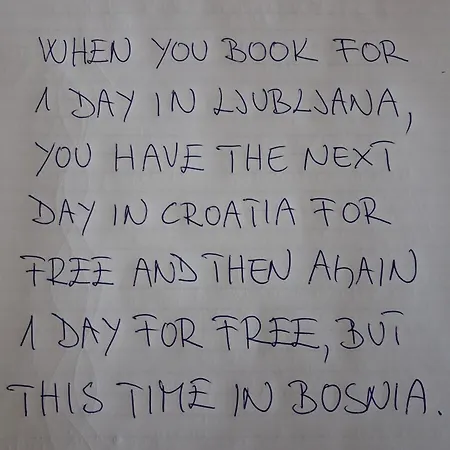 WHEN YOU BOOK FOR
1 DAY IN LJUBLJANA,
YOU HAVE THE NEXT
DAY IN CROATIA FOR
FREE AND THEN AGAIN
1 DAY FOR FREE, BUT
THIS TIME IN BOSNIA.